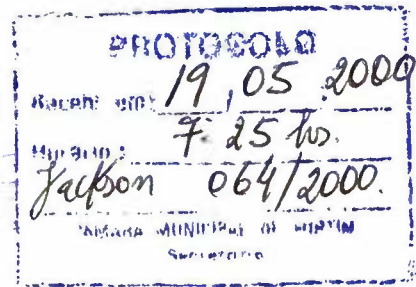 PROTOCOLO
Recebi em: 19, 05 2000
Horário: 7:25 hs.
Jackson 064/2000.
CAMARA MUNICIPAL DE FORTIM
Secretaria